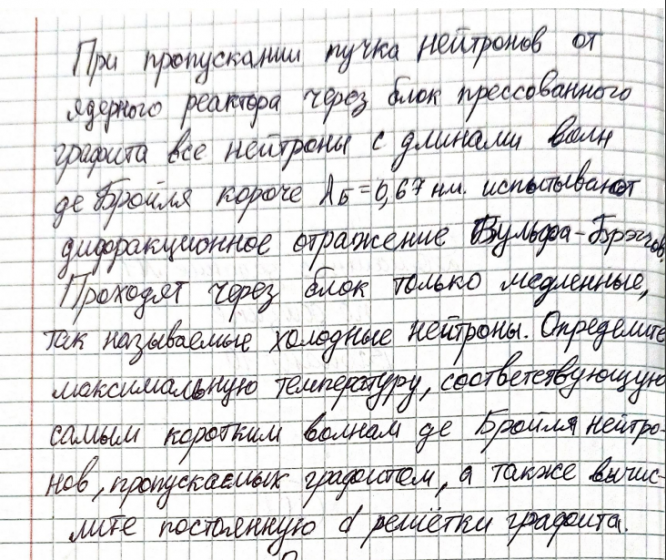 При пропускании пучка нейтронов от
ядерного реактора через блок прессованного
графита все нейтроны с длинами волн
де Бройля короче λБ = 0,67 нм. испытывают
дифракционное отражение Вульфа-Брэггов.
Проходят через блок только медленные,
так называемые холодные нейтроны. Определите
максимальную температуру, соответствующую
самым коротким волнам де Бройля нейтро-
нов, пропускаемых графитом, а также вычис-
лите постоянную d решётки графита.